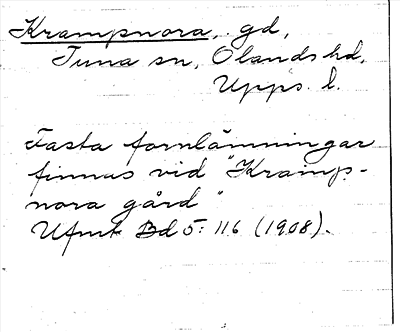 Krampnora, gd,
Tuna sn, Olands hd,
Upps. l.
Fasta fornlämningar
finnas vid "Kramp-
nora gård"
Ufmt Bd 5: 116 (1908).